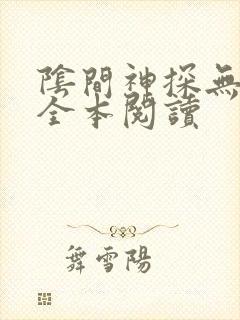 陰間神探無
全本閱讀
舞雪陽